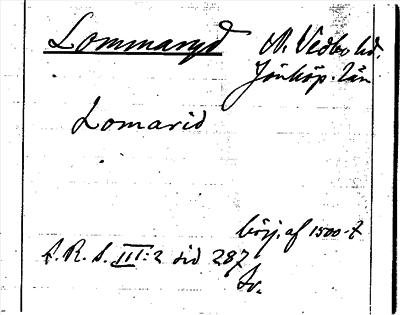 Lommaryd N. Vedbo hd.
Jönköp. län
Lomarid
börj. af 1500-t
A. R. S. III:2 sid 287
Av.